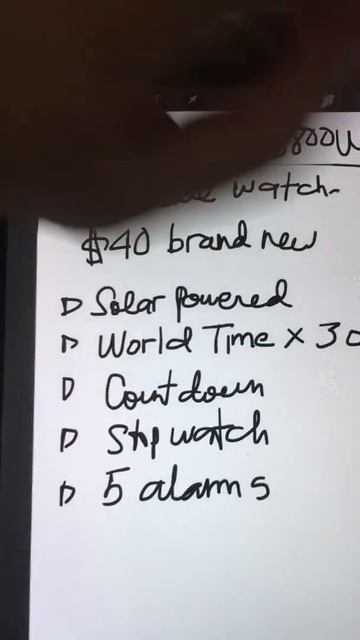 watch
$40 brand new
Solar powered
World Time x 30
Countdown
Stopwatch
5 alarms